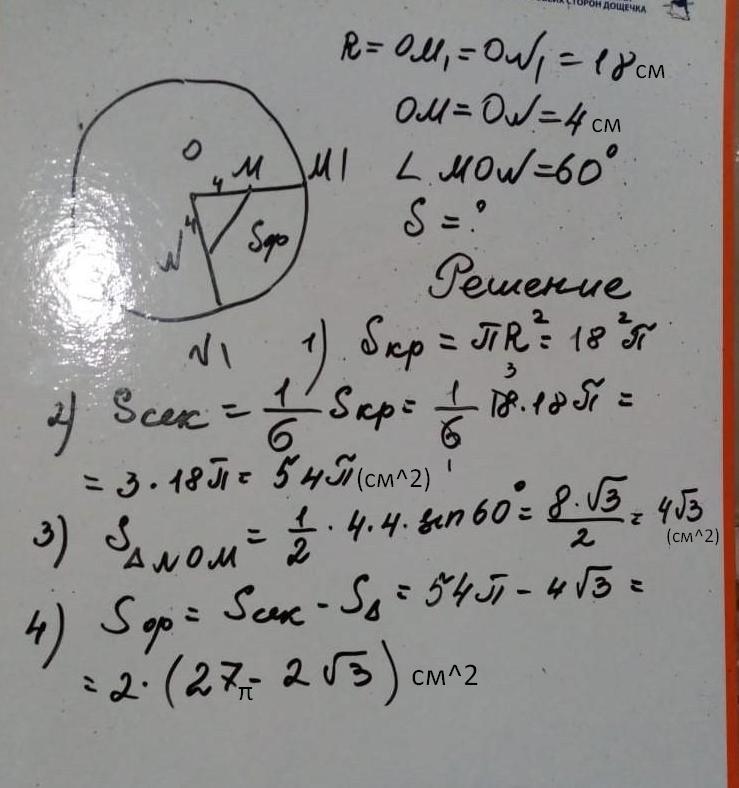 СТОРОН ДОЩЕЧКА
R = OM₁ = ON₁ = 18 см
OM = ON = 4 см
∠ MON = 60°
S = ?
O
4 M M1
4
N
Sфр
N1
Решение
1) Sкр = πR² = 18²π
2) Sсек = 1/6 Sкр = 1/6 18·18π =
3
1
= 3·18π = 54π (см^2)
3) S△NOM = 1/2 · 4·4· sin 60° = 8·√3/2 = 4√3
(см^2)
4) Sфр = Sсек - S△ = 54π - 4√3 =
= 2·(27π - 2√3) см^2